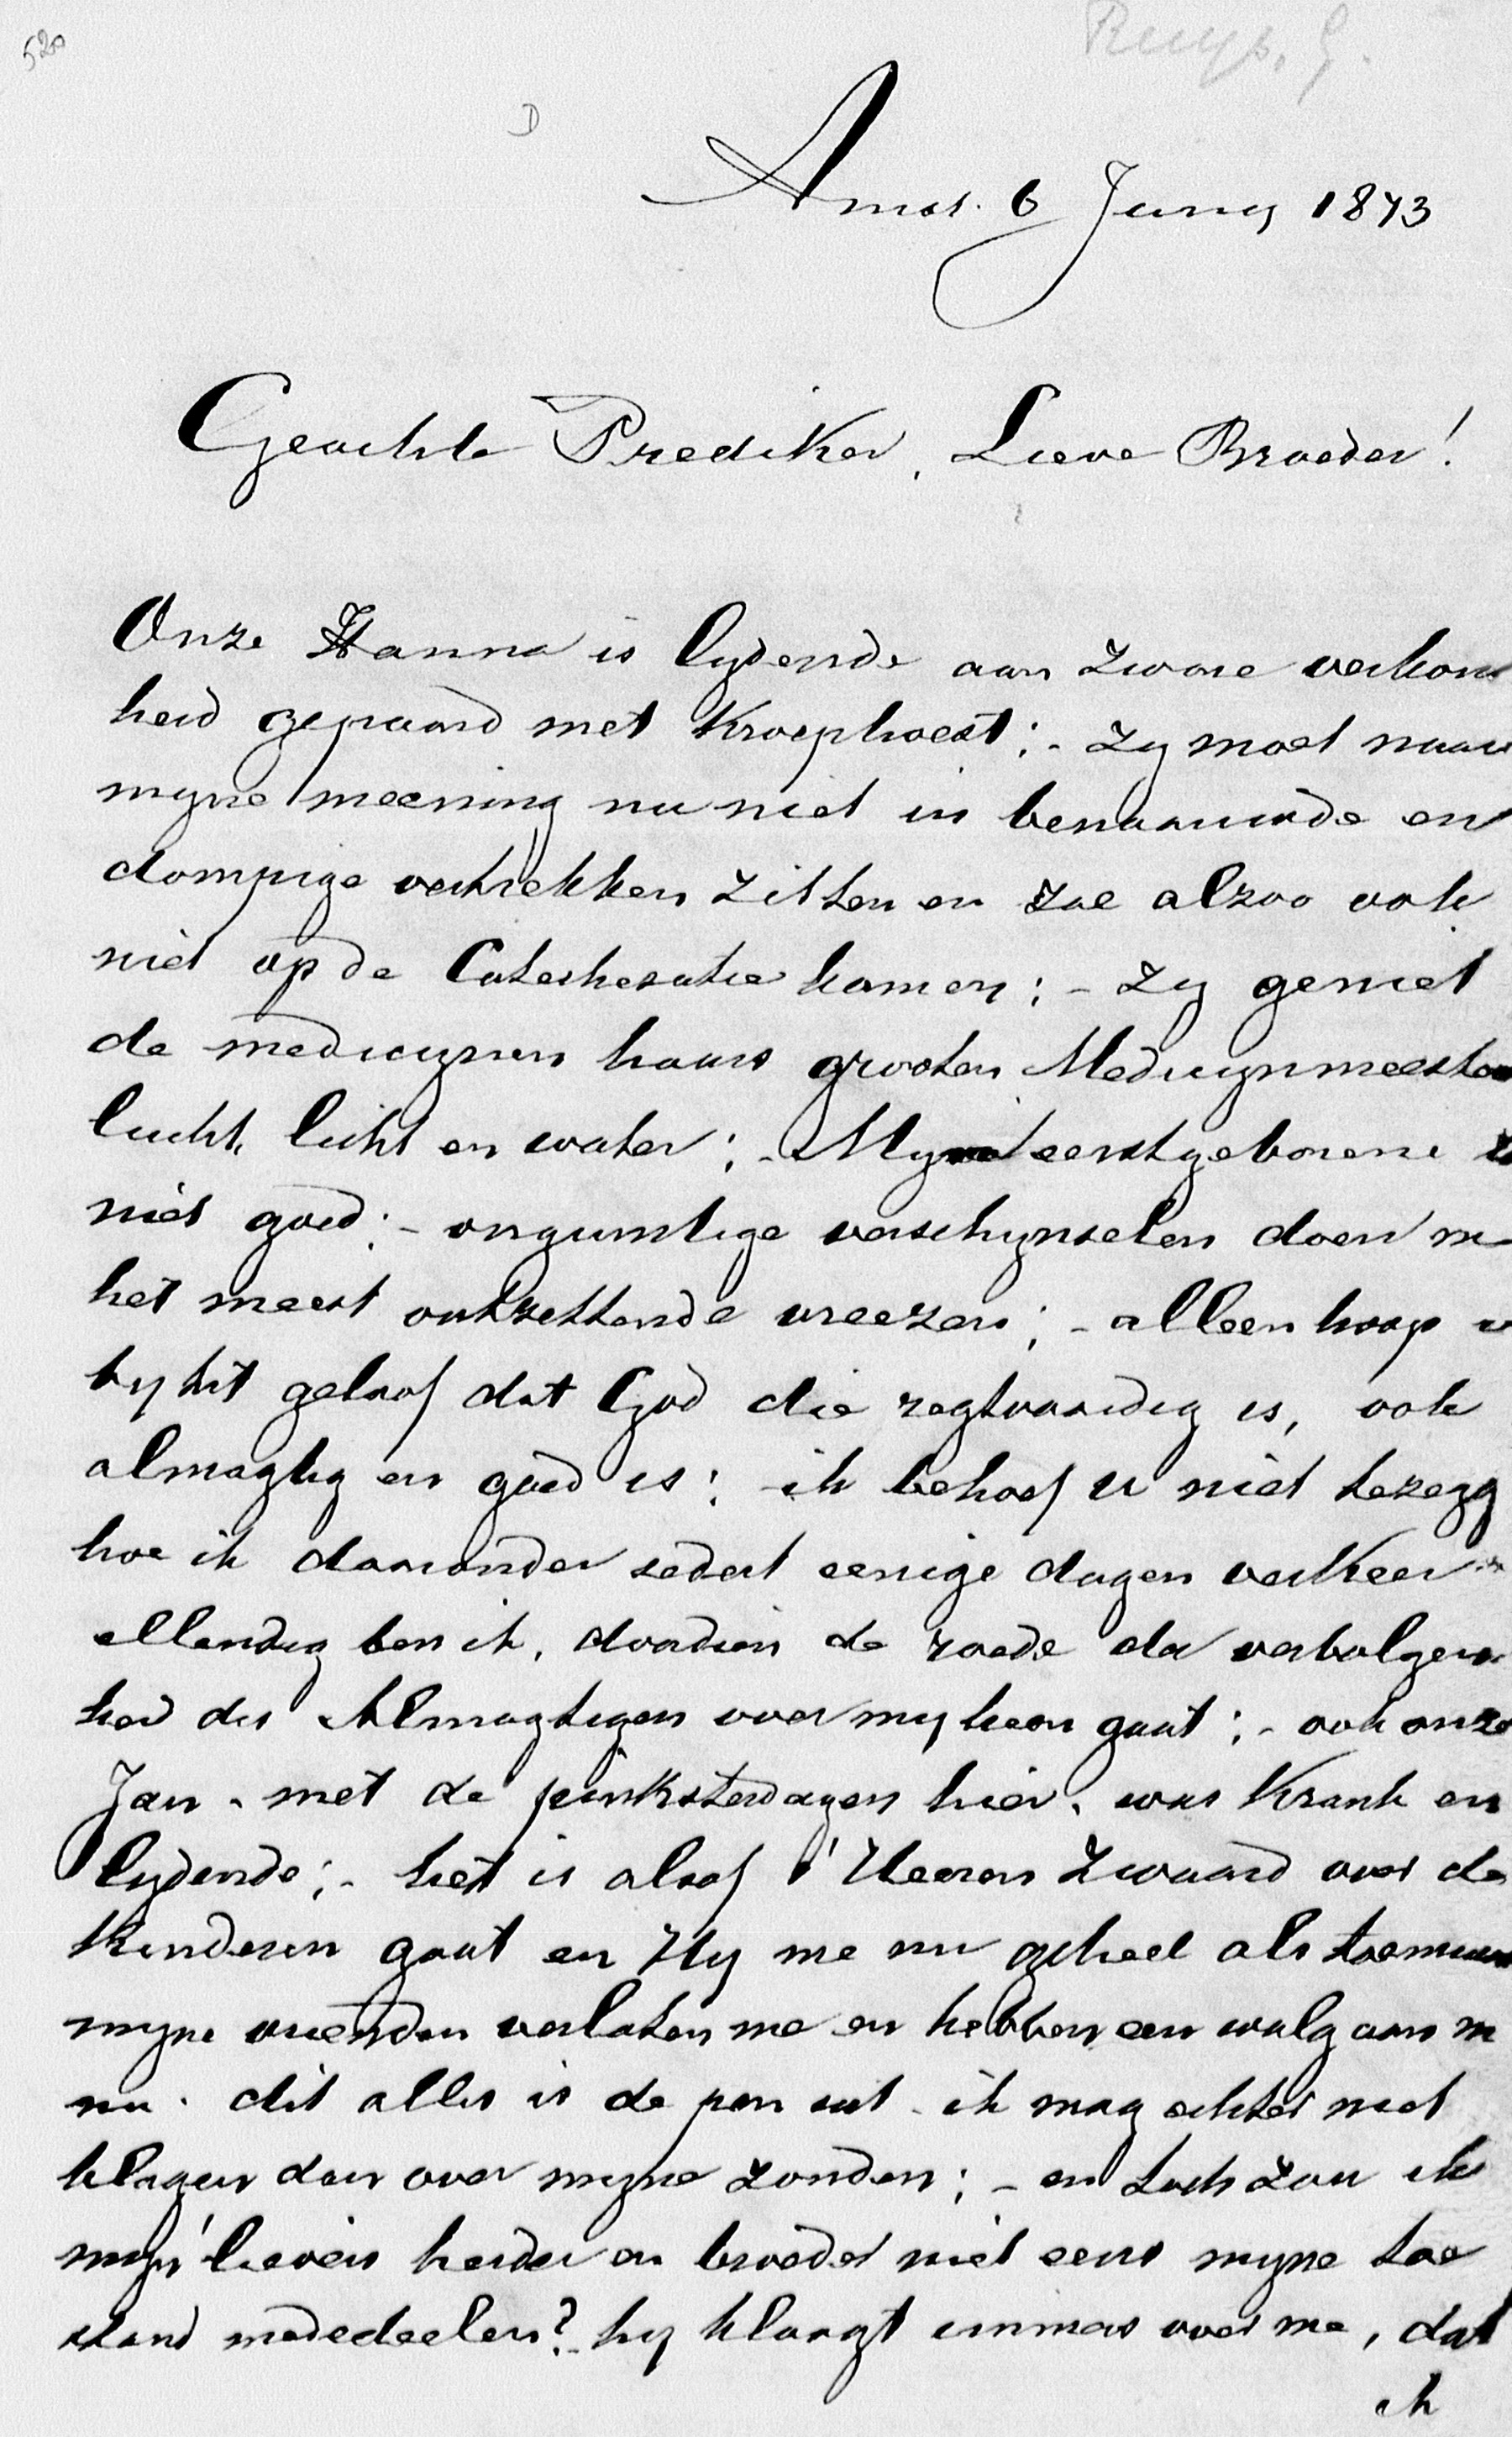 520
Ruys, G.
D
Amst. 6 Juny 1873
Geachte Prediker, Lieve Broeder!
Onze Hanna is lydende aan zware verkou
heid gepaard met Kroephoest; - zy moet naar
myne meening nu niet in benaauwde en
dompige vertrekken zitten en zal alzoo ook
niet op de Catechesatie komen; - zy geniet
de medicynen haars grooten Medicynmeesters
lucht, licht en water; - Myn eerstgeborene is
niet goed; - ongunstige verschynselen doen m
het meest ontzettende vreezen; - alleen hoop i
by hit geloof dat God die regtvaardig is, ook
almagtig en goed is; - ik behoef u niet te zegg
hoe ik daaronder sedert eenige dagen verkeer
ellendig ben ik, doordien de roede der verbolgen
heid des Almagtigen over my heen gaat; - ook onze
Jan - met de pinksterdagen hier - was Krank en
lydende; - het is alsof 's Heeren Zwaard over de
Kinderen gaat en Hy me nu geheel als
myne vrienden verlaten me en hebben een walg aan m
nu. dit alles is de pen uit - ik mag echter niet
klagen dan over myne zonden; - en toch zou ik
myn' lieven herder en broeder niet eens myne toe
stand mededeelen? - hy klaagt immers over me, dat
ik